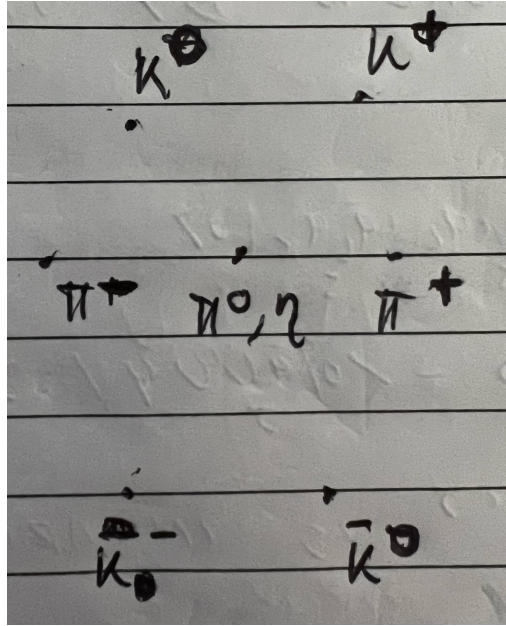 K⁰ K⁺
π⁻ π⁰, η π⁺
K⁻ K̄⁰